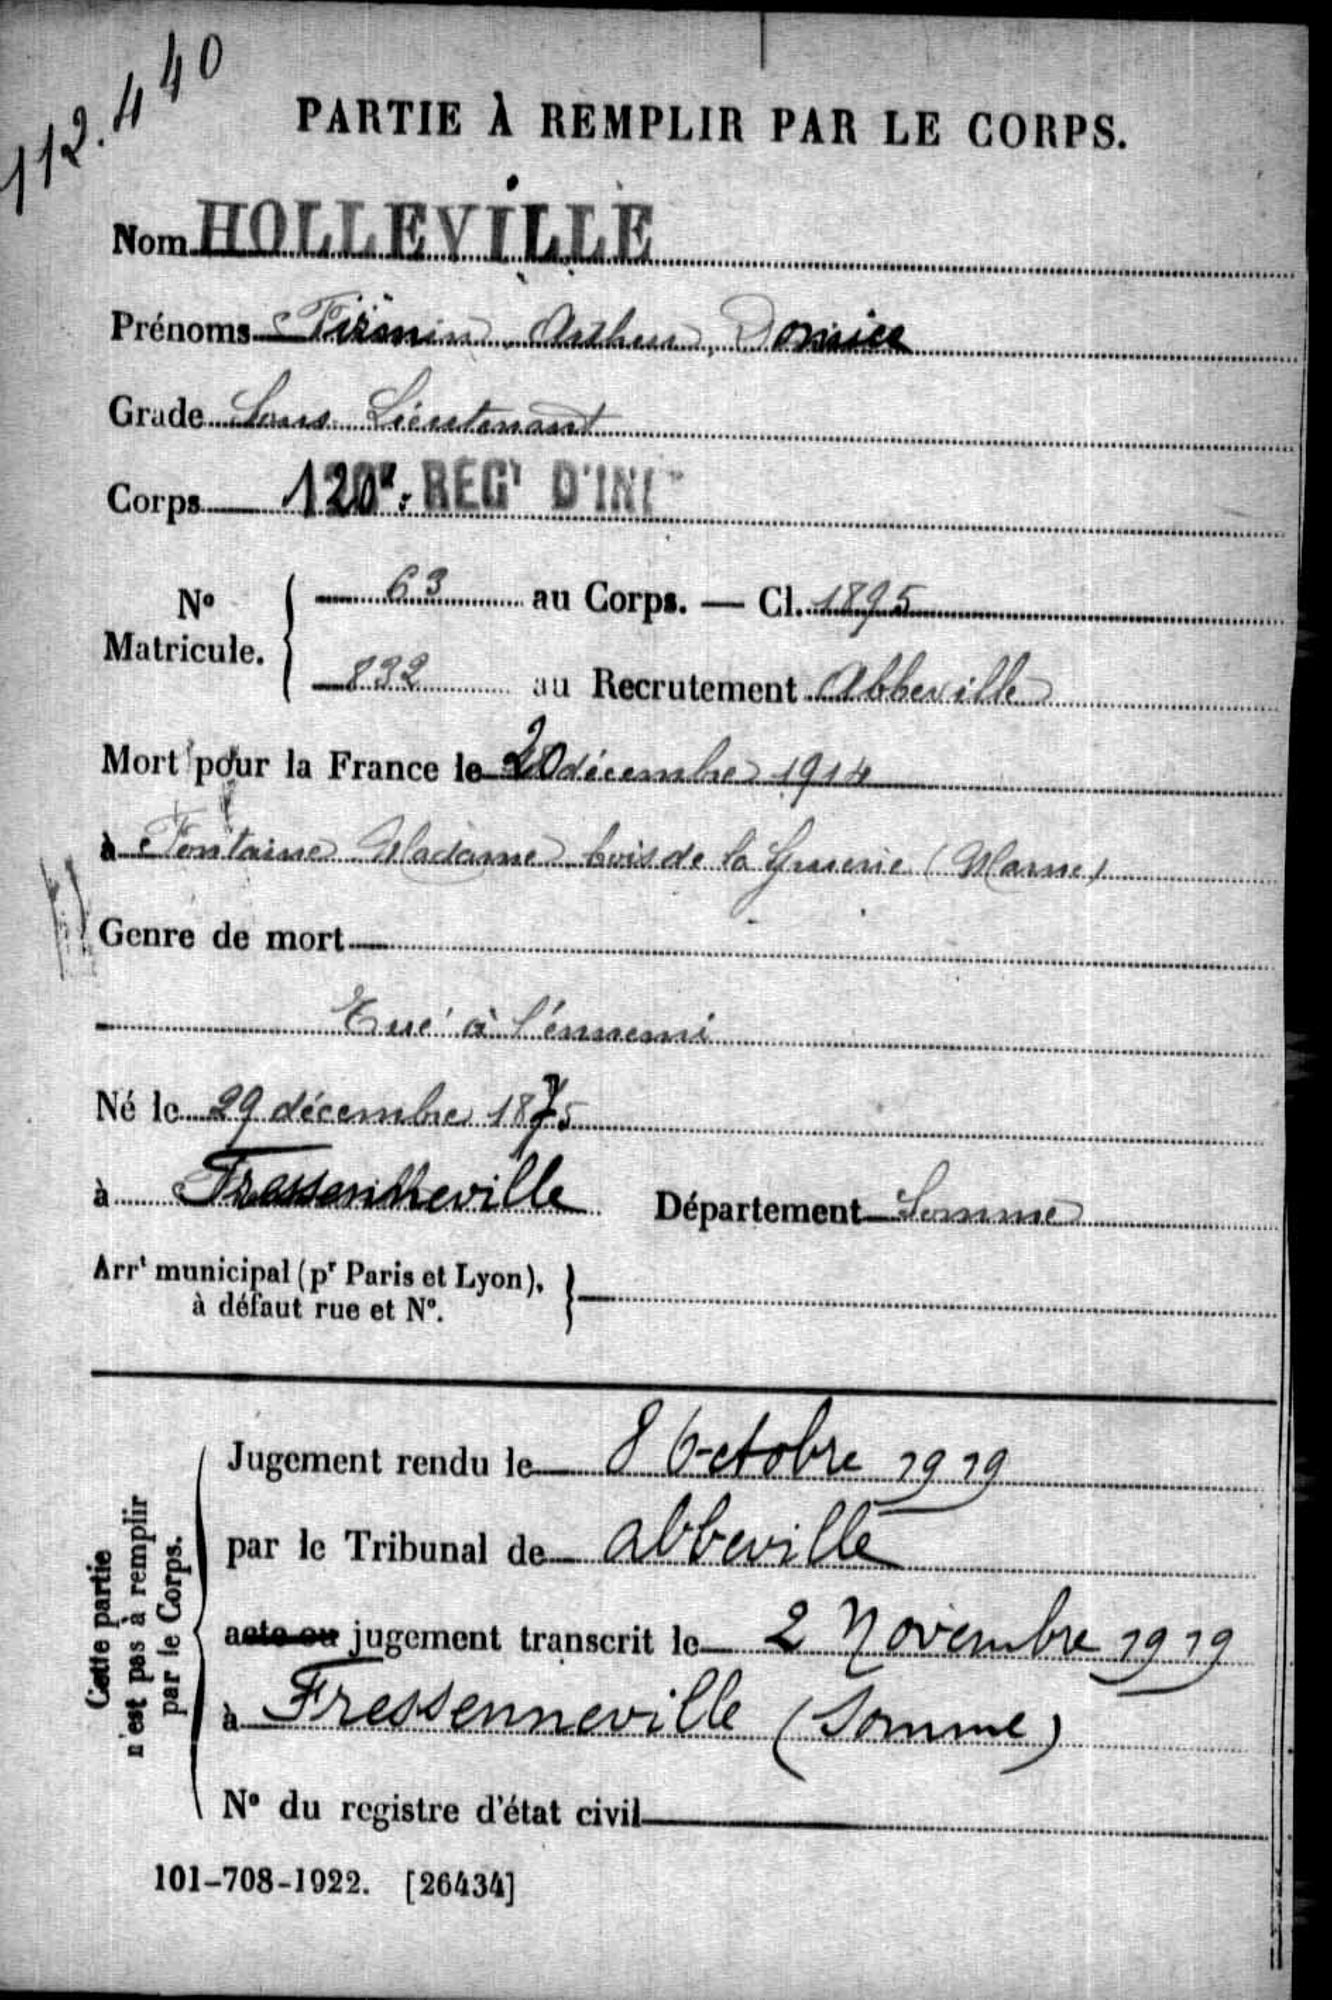 112.440
PARTIE À REMPLIR PAR LE CORPS.
Nom HOLLEVILLE
Prénoms Firmin, Arthur,
Grade Sous Lieutenant
Corps 120e REGt D'INF
No Matricule. 63 au Corps. — Cl. 1895
832 au Recrutement Abbeville
Mort pour la France le 20 décembre 1914
à Fontaine Madame bois de la Gruerie (Marne)
Genre de mort
Tué à l'ennemi
Né le 29 décembre 1875
à Fressenneville Département Somme
Arrt municipal (pr Paris et Lyon),
à défaut rue et No.
Cette partie
n'est pas à remplir
par le Corps.
Jugement rendu le 8 Octobre 1919
par le Tribunal de abbeville
acte ou jugement transcrit le 2 Novembre 1919
à Fressenneville (Somme)
No du registre d'état civil
101-708-1922. [26434]